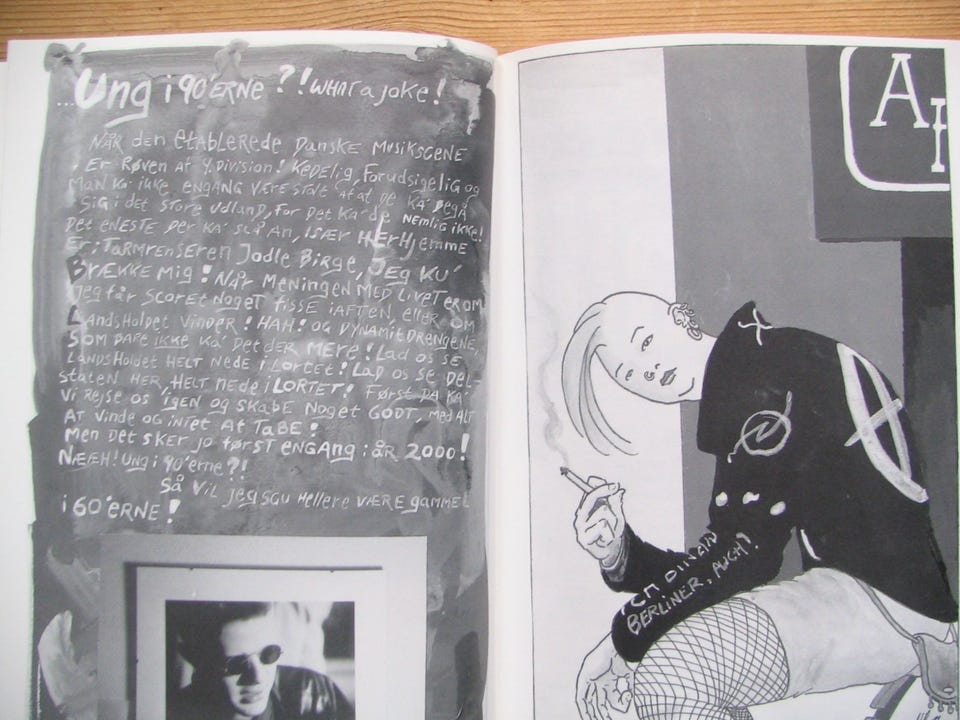 ...Ung i 90'ERNE ?! WHAT a joke!
NÅR den etABLeRede DANSKE MUSIKSCENE
Er RøveN af 4. DIVISION! KeDELIG, Forudsigelig og
MAN KA' ikke ENGANG VÆRE STOLT AF at De KA' BegÅ
SIG i det STORE UDLAND, FOR Det KA' de NEMLIG ikke!
Det eNeste Der KA' SLÅ AN, ISÆR HerHjemme
Er: TARMRENSEREN Jodle BIRGe, Jeg KU'
BrÆKKe MIG! NÅR MENINGEN MED LIVET er OM
Jeg får SCORET NOGET fisse iAFTEN, eller OM
LandsHolDet VINDER! HAH! OG DYNAMITDRENGENE,
SOM BARE iKKE KA' Det DER MERE! Lad os SE
LANDSHOLDet HELT NeDe i LORTeT! LAD OS SE Del-
staten HER, HELT NEDE i LORTET! FØRST DA KA'
Vi ReJSe OS IGEN og SKABe NOGET GODT, Med ALT
At VINDE OG iNTet At TABE!
Men Det SKER JO FØRST ENGANG i år 2000!
NÆÆH! UNG i 90'erne?!
SÅ VIL jeg SGU Hellere VÆRe gammel
i 60'ERNE!
A
BERLINER, AUCH!